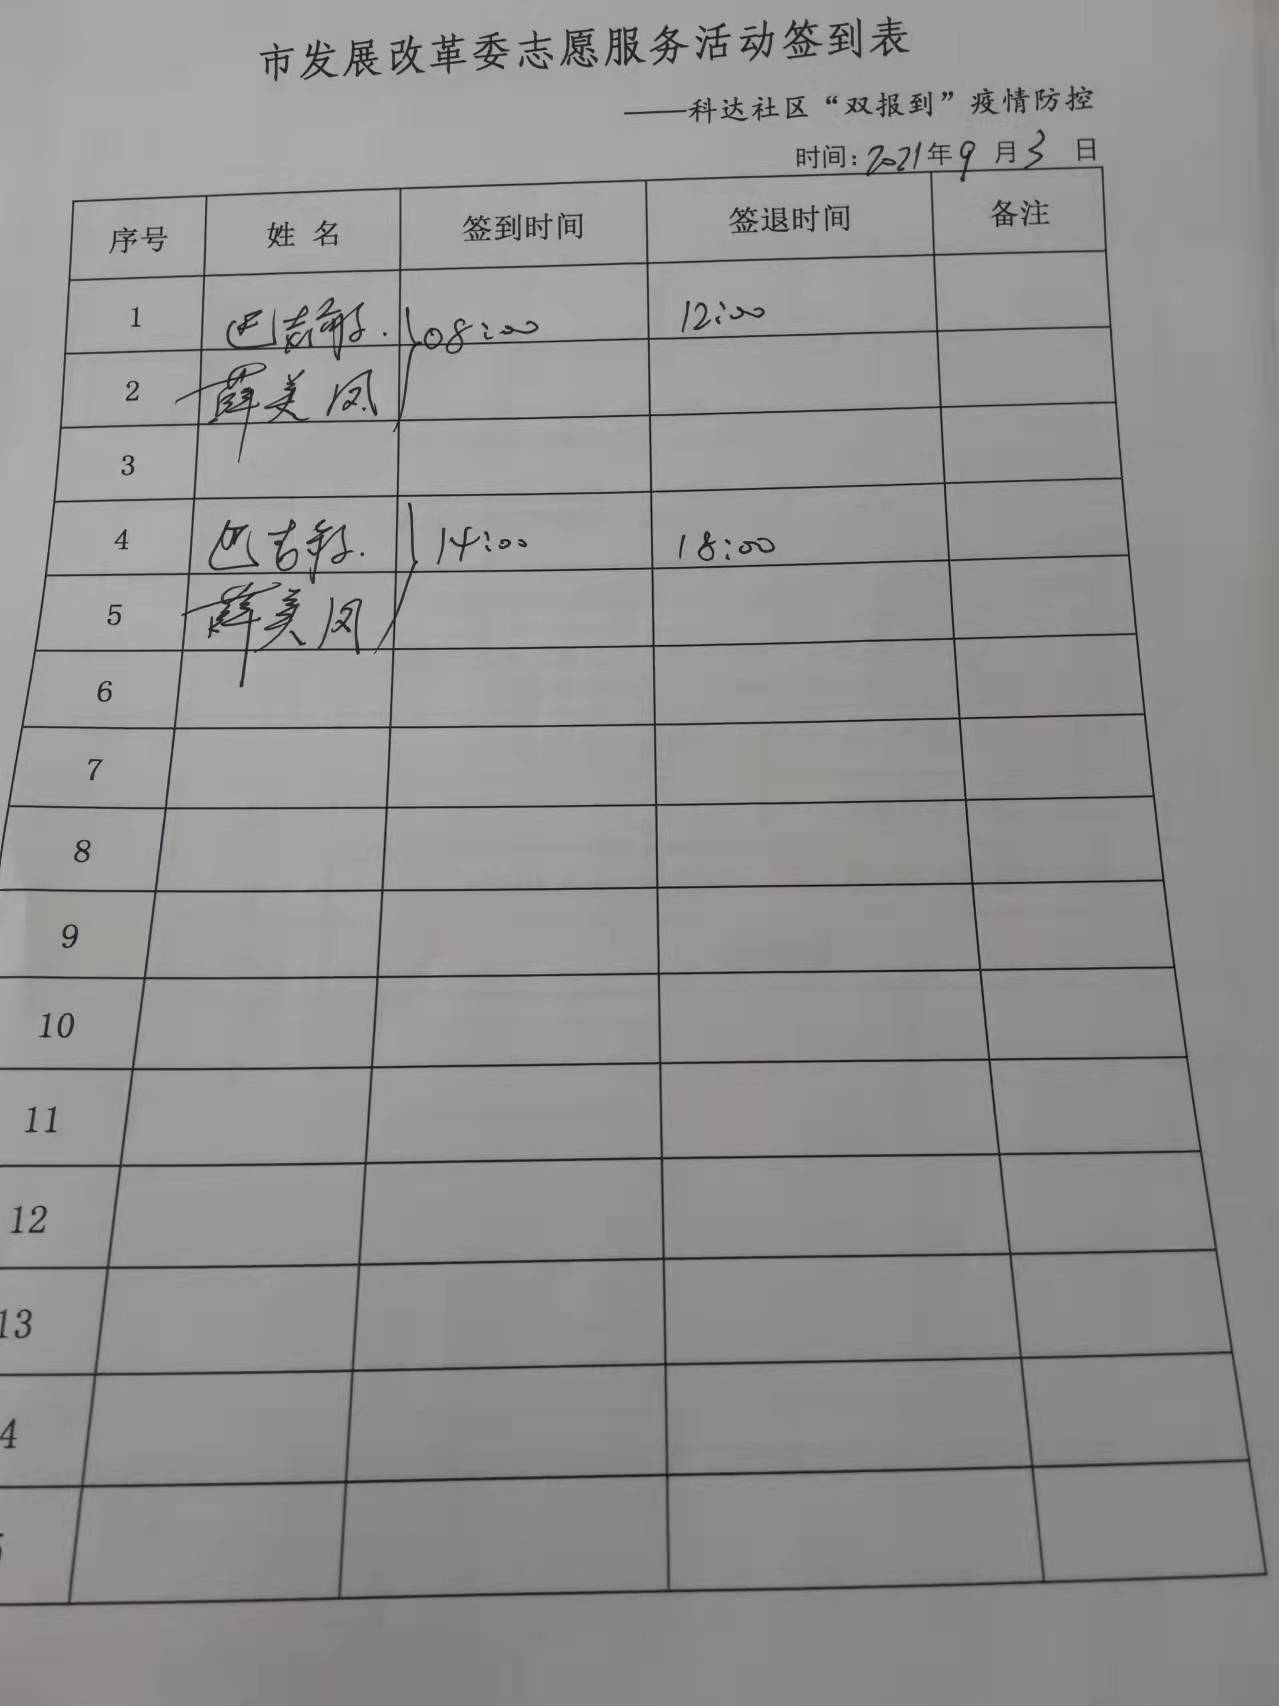 市发展改革委志愿服务活动签到表
——科达社区“双报到”疫情防控
时间:2021年9月3日
序号 姓名 签到时间 签退时间 备注
1 巴吉 08:00 12:00
2 薛美凤
3
4 巴吉 14:00 18:00
5 薛美凤
6
7
8
9
10
11
12
13
4